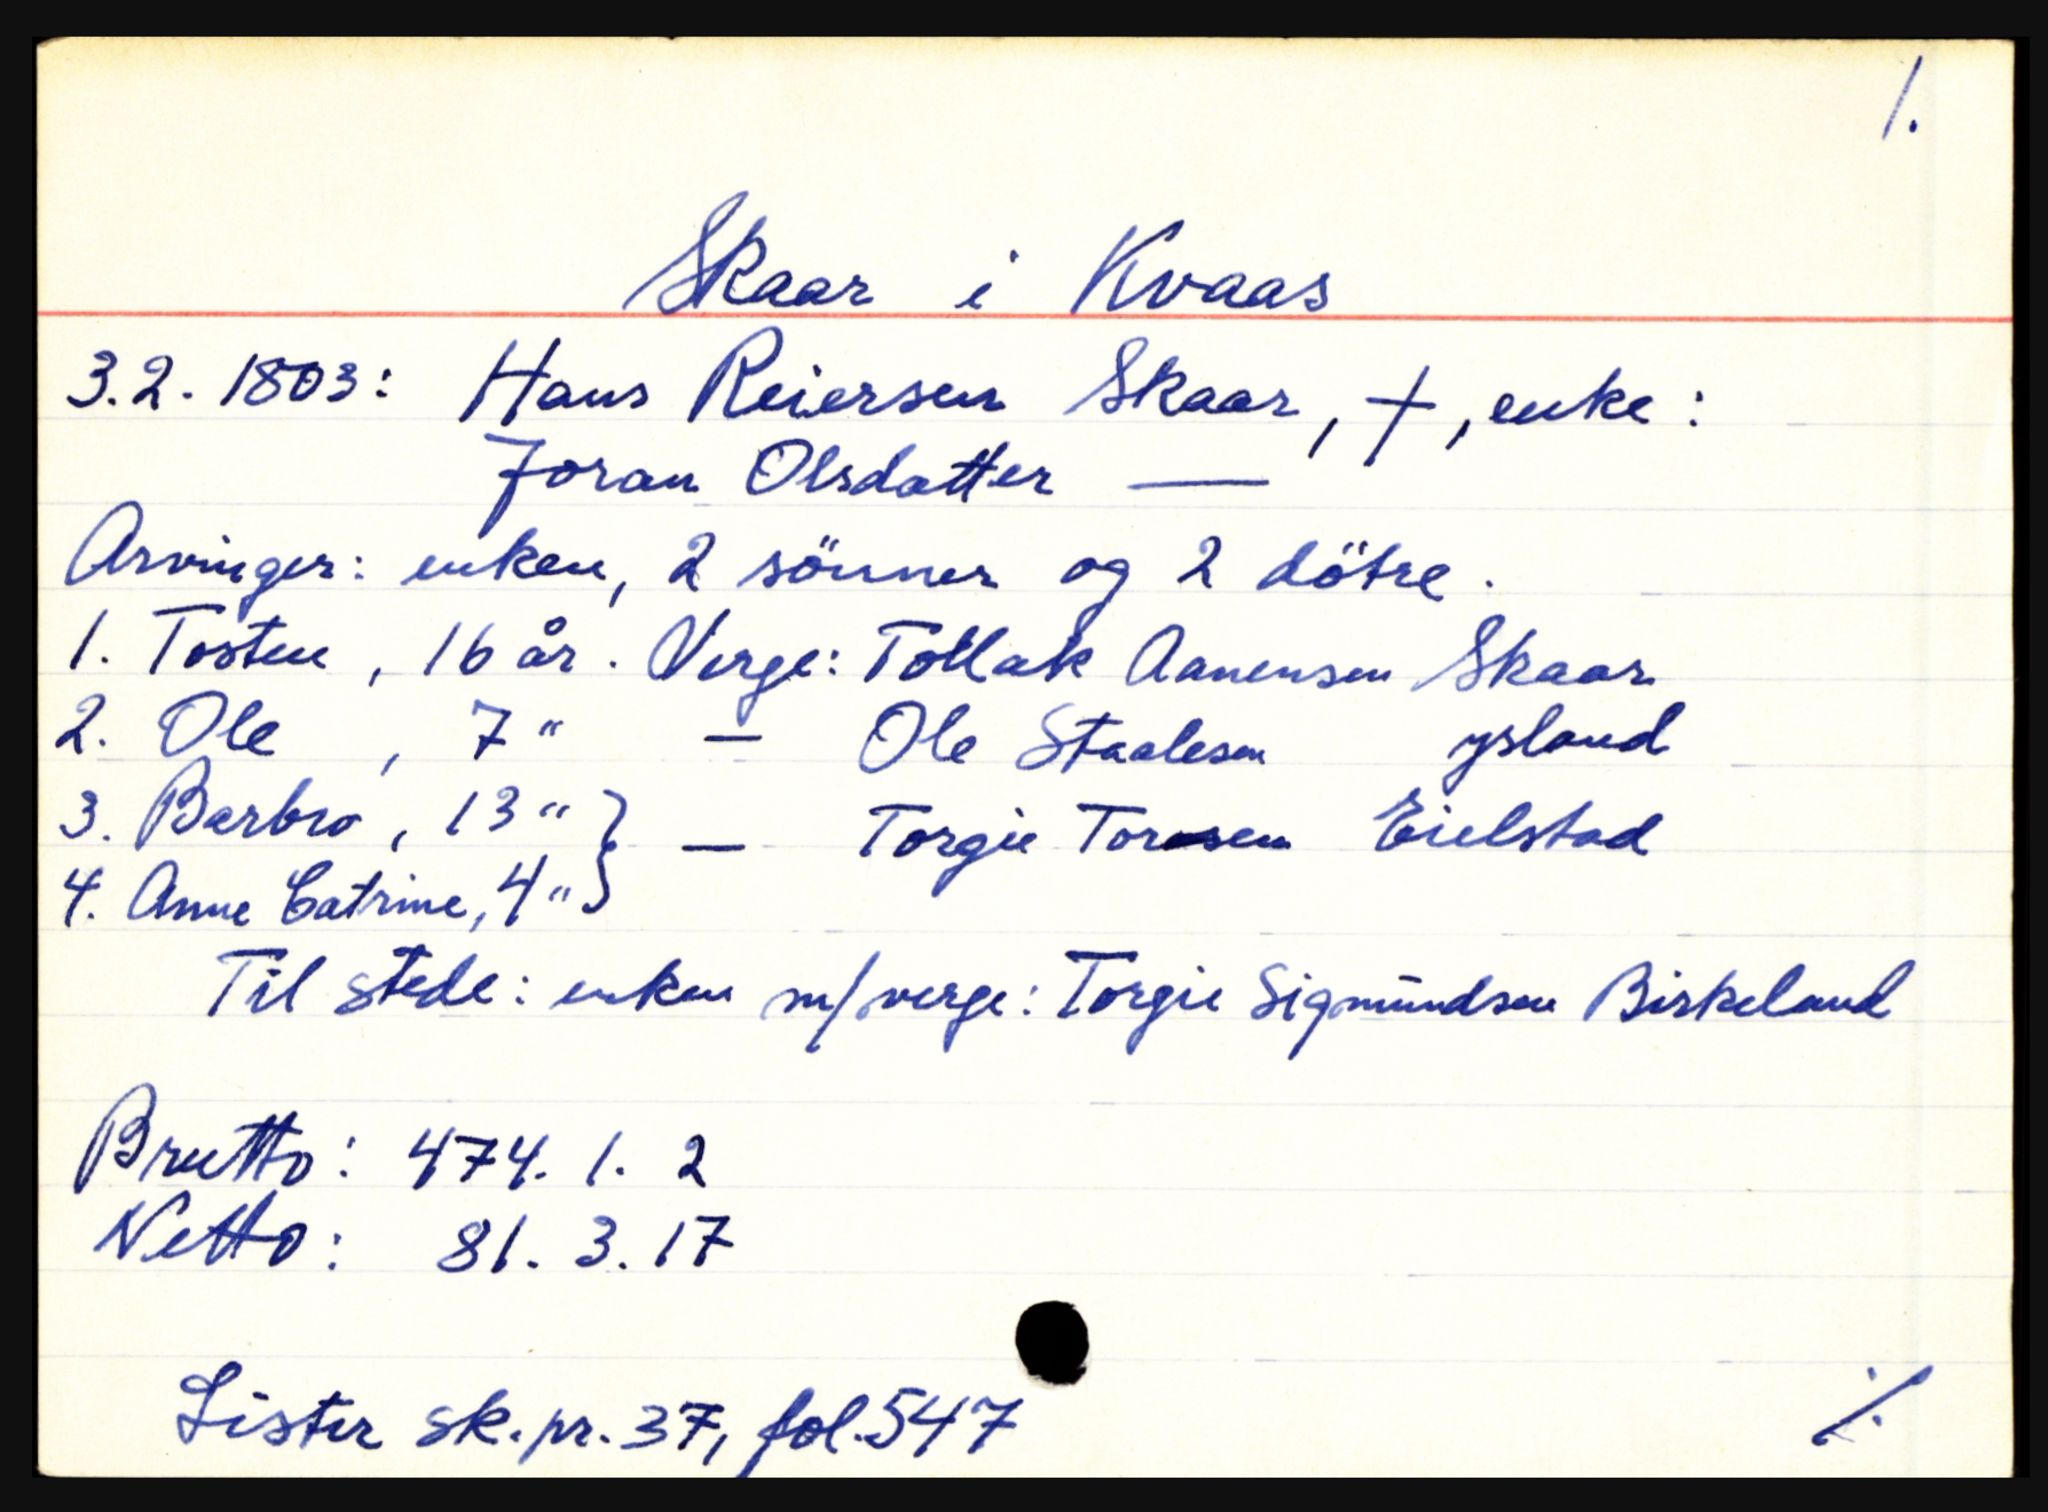 1.
Skaar i Kvaas
3.2. 1803: Hans Reiersen Skaar, †, enke:
Joran Olsdatter —
Arvinger: enken, 2 sönner og 2 dötre.
1. Tosten, 16 år. Verge: Tollak Aanensen Skaar
2. Ole, 7 " — Ole Staalesen ysland
3. Barbro, 13 " } — Torgie Toresen Eielstad
4. Anne Catrine, 4 " }
Til stede: enken m/verge: Torgie Sigmundsen Birkeland
Brutto: 474. 1. 2
Netto: 81. 3. 17
Lister sk. pr. 37, fol. 547
./.